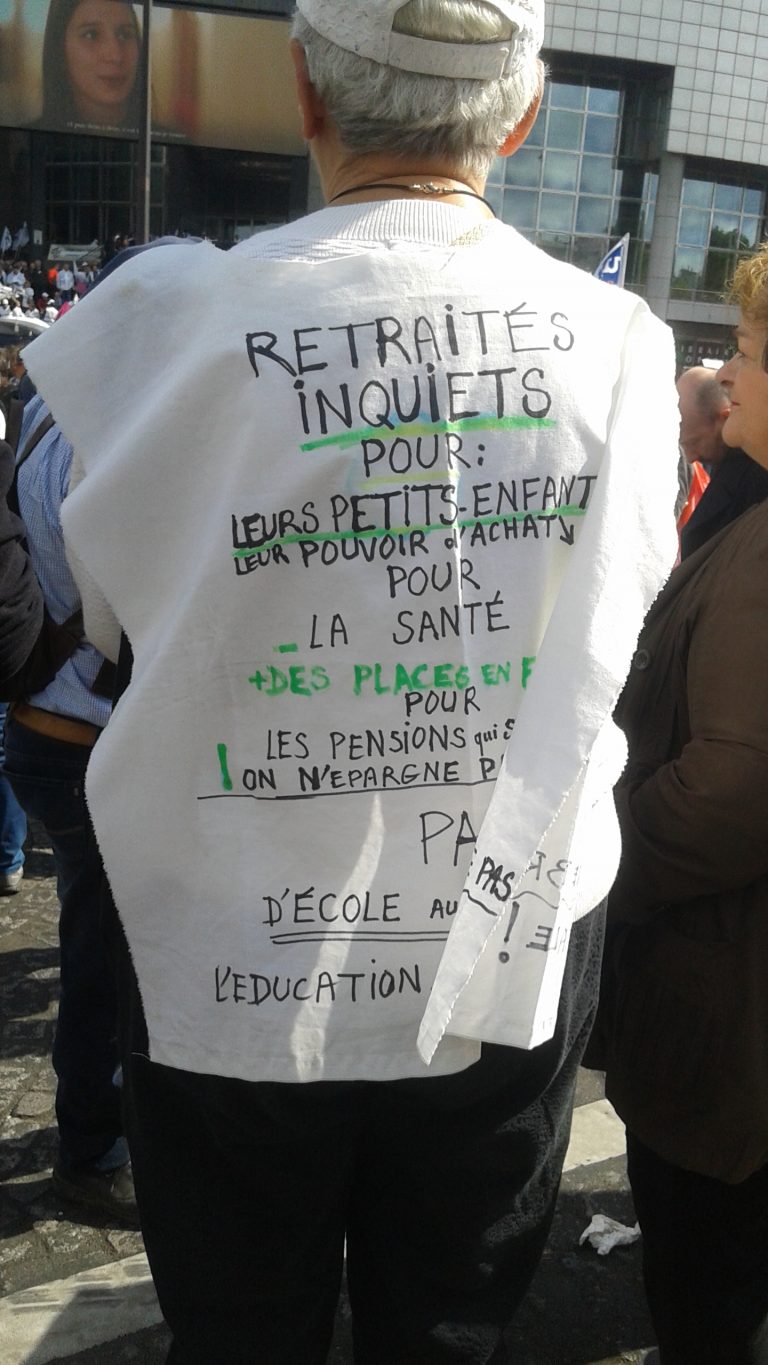 RETRAITÉS
INQUIETS
POUR:
LEURS PETITS-ENFANT
LEUR POUVOIR d'ACHAT↘
POUR
LA SANTÉ
+DES PLACES EN
POUR
LES PENSIONS qui
! ON N'EPARGNE
PAS
!
D'ÉCOLE AU
L'EDUCATION